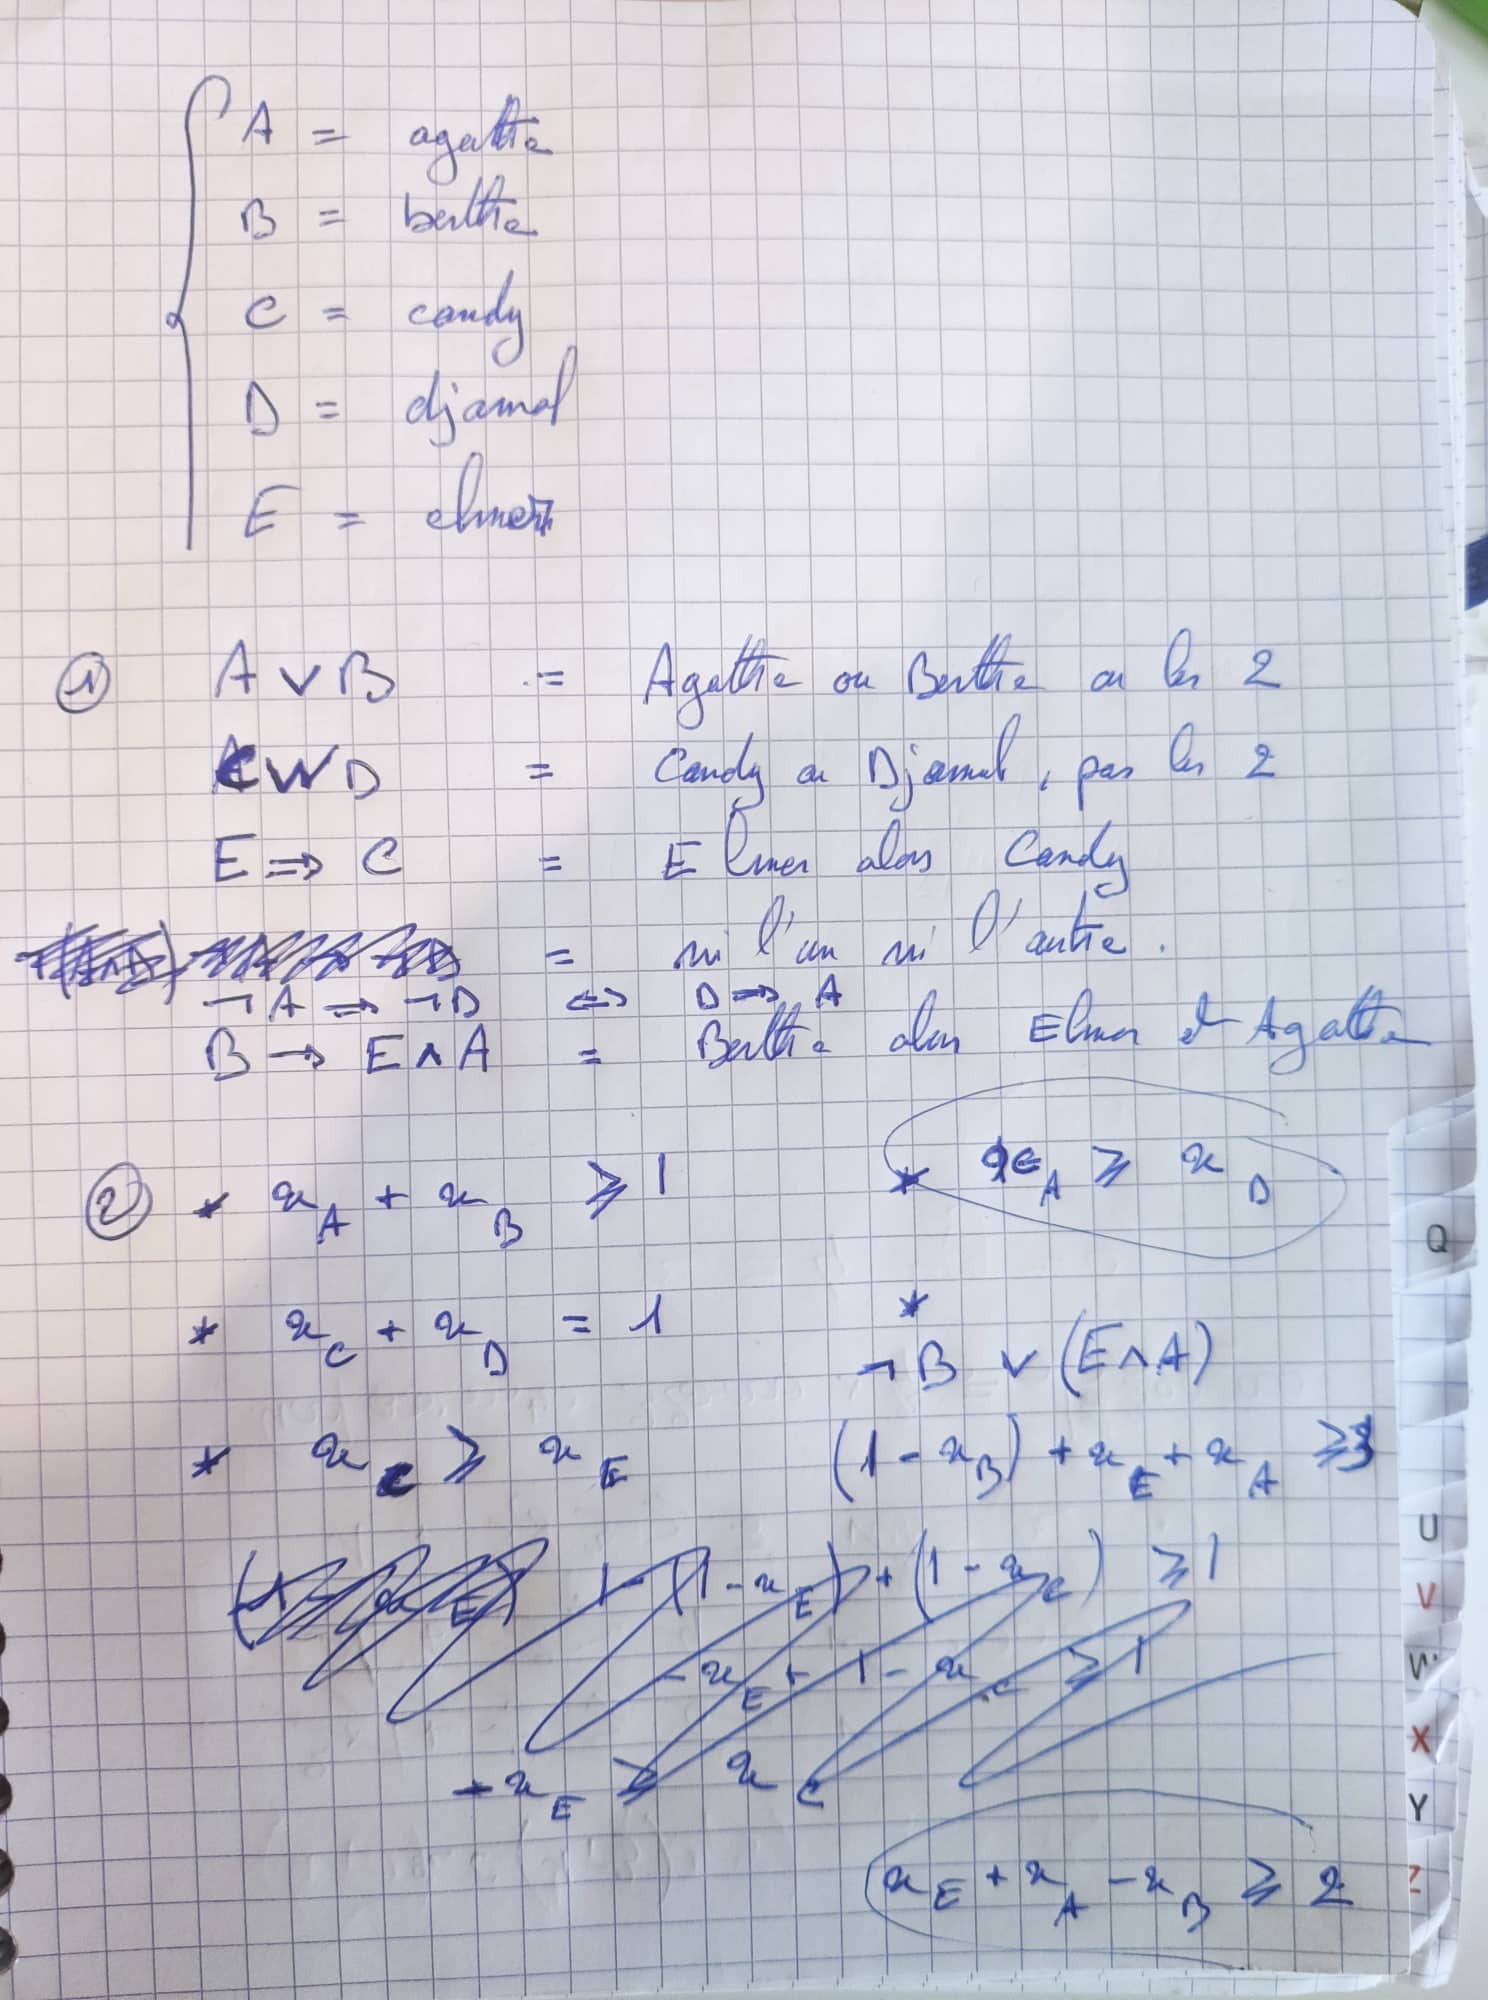 A = agathe
B = berthe
C = candy
D = djamal
E = elmer
① A ∨ B = Agathe ou Berthe ou les 2
C W D = Candy ou Djamal, pas les 2
E ⇒ C = Elmer alors Candy
= ni l'un ni l'autre.
¬A ⇒ ¬D ⇔ D ⇒ A
B → E ∧ A = Berthe alors Elmer et Agathe
② * x_A + x_B ⩾ 1
* x_A ⩾ x_D
* x_C + x_D = 1
* ¬B ∨ (E ∧ A)
* x_C ⩾ x_E
(1 - x_B) + x_E + x_A ⩾ 3
1 - (1 - x_E) + (1 - x_C) ⩾ 1
- x_E + 1 - x_C ⩾ 1
- x_E ⩾ x_C
x_E + x_A - x_B ⩾ 2
Q
U
V
W
X
Y
Z